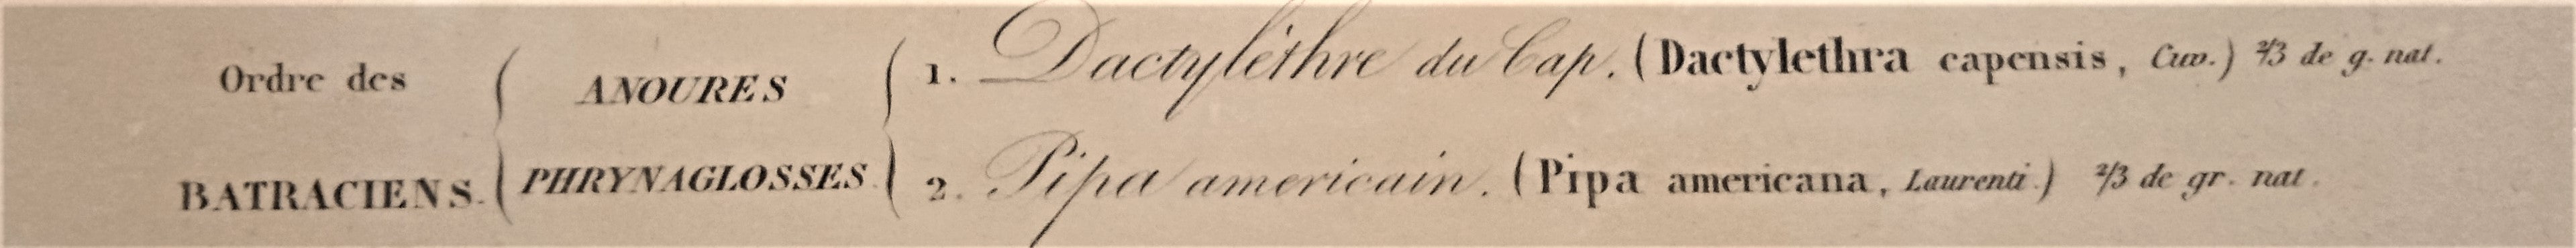 Ordre des ANOURES 1. Dactylèthre du Cap. (Dactylethra capensis, Cuv.) 2/3 de g. nat.
BATRACIENS. PHRYNAGLOSSES 2. Pipa americain. (Pipa americana, Laurenti.) 2/3 de gr. nat.